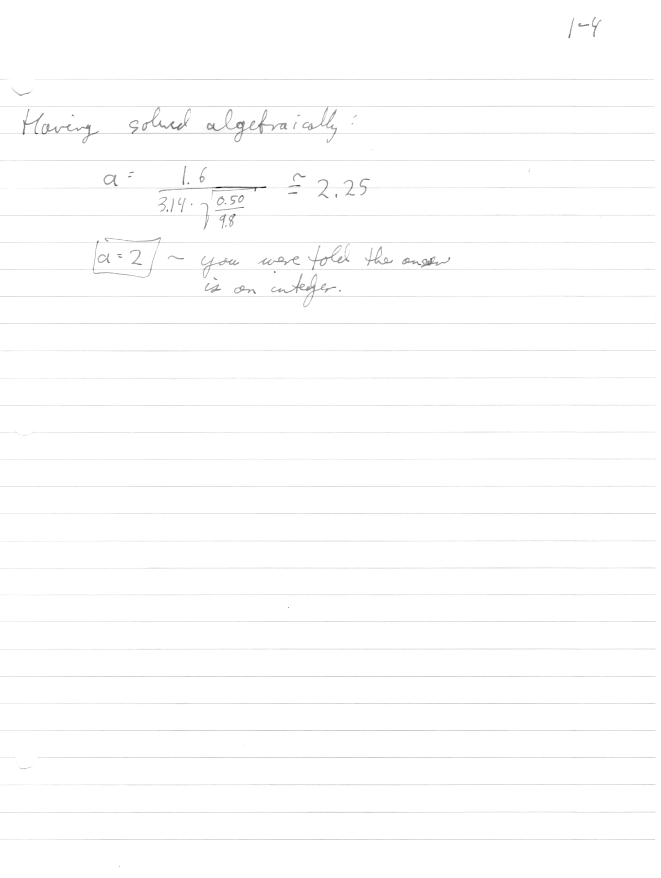 1-4
Having solved algebraically:
a = 1.6 / (3.14 · √(0.50 / 9.8)) ≅ 2.25
a = 2 ~ you were told the
is an integer.